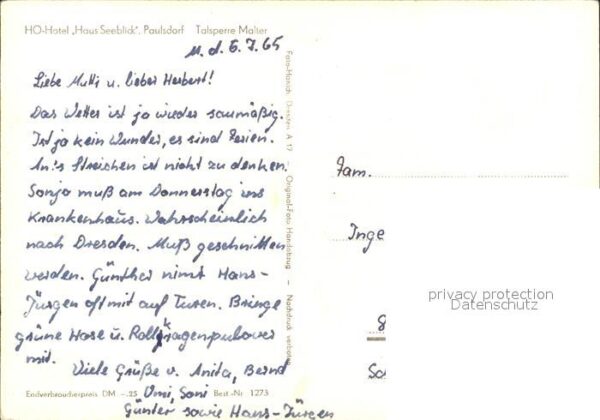 HO-Hotel „Haus Seeblick", Paulsdorf Talsperre Malter
M. d. 6.7.65
Liebe Mutti u. lieber Herbert!
Das Wetter ist ja wieder saumäßig.
Ist ja kein Wunder, es sind Ferien.
An's Streichen ist nicht zu denken.
Sonja muß am Donnerstag ins
Krankenhaus. Wahrscheinlich
nach Dresden. Muß geschnitten
werden. Günther nimt Hans-
Jürgen oft mit auf Turen. Bringe
grüne Hose u. Rollkragenpulover
mit.
Viele Grüße v. Anita, Bernd
Omi, Soni
Günter sowie Hans-Jürgen
Endverbraucherpreis DM -.25 Best.-Nr. 1273
Foto-Hanich Dresden A 17 - Original-Foto Handabzug - Nachdruck verboten
Fam.
Inge
privacy protection
Datenschutz